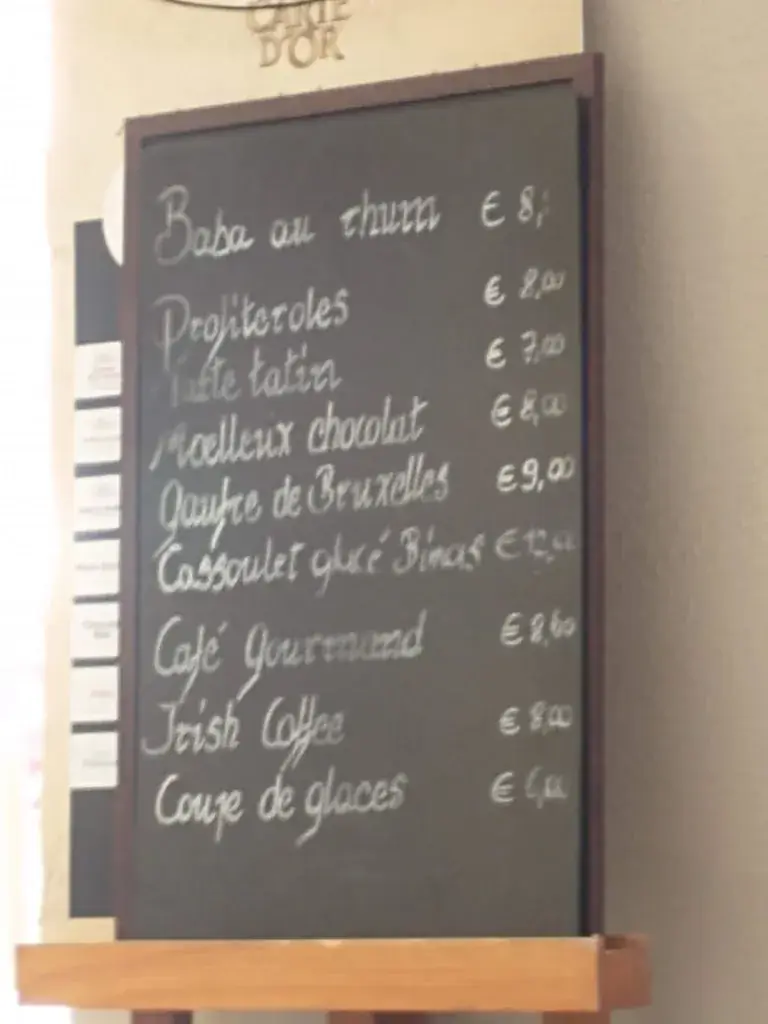 CARTE
D'OR
Baba au rhum € 8,-
Profiteroles € 8,00
Tarte tatin € 7,00
Moelleux chocolat € 8,00
Gaufre de Bruxelles € 9,00
Cassoulet glacé Binas €
Café Gourmand € 8,60
Irish Coffee € 8,00
Coupe de glaces €